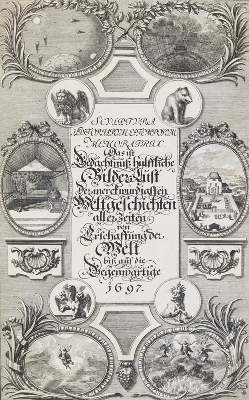 SCULPTURA
HISTORIARUM ET TEMPORUM
MEMORATRIX
Das ist
Gedächtnüß hülffliche
Bilder-Lust
der merckwürdigsten
Weltgeschichten
aller Zeiten
von
Erschaffung der
Welt
biß auf die
Gegenwärtige
1697.